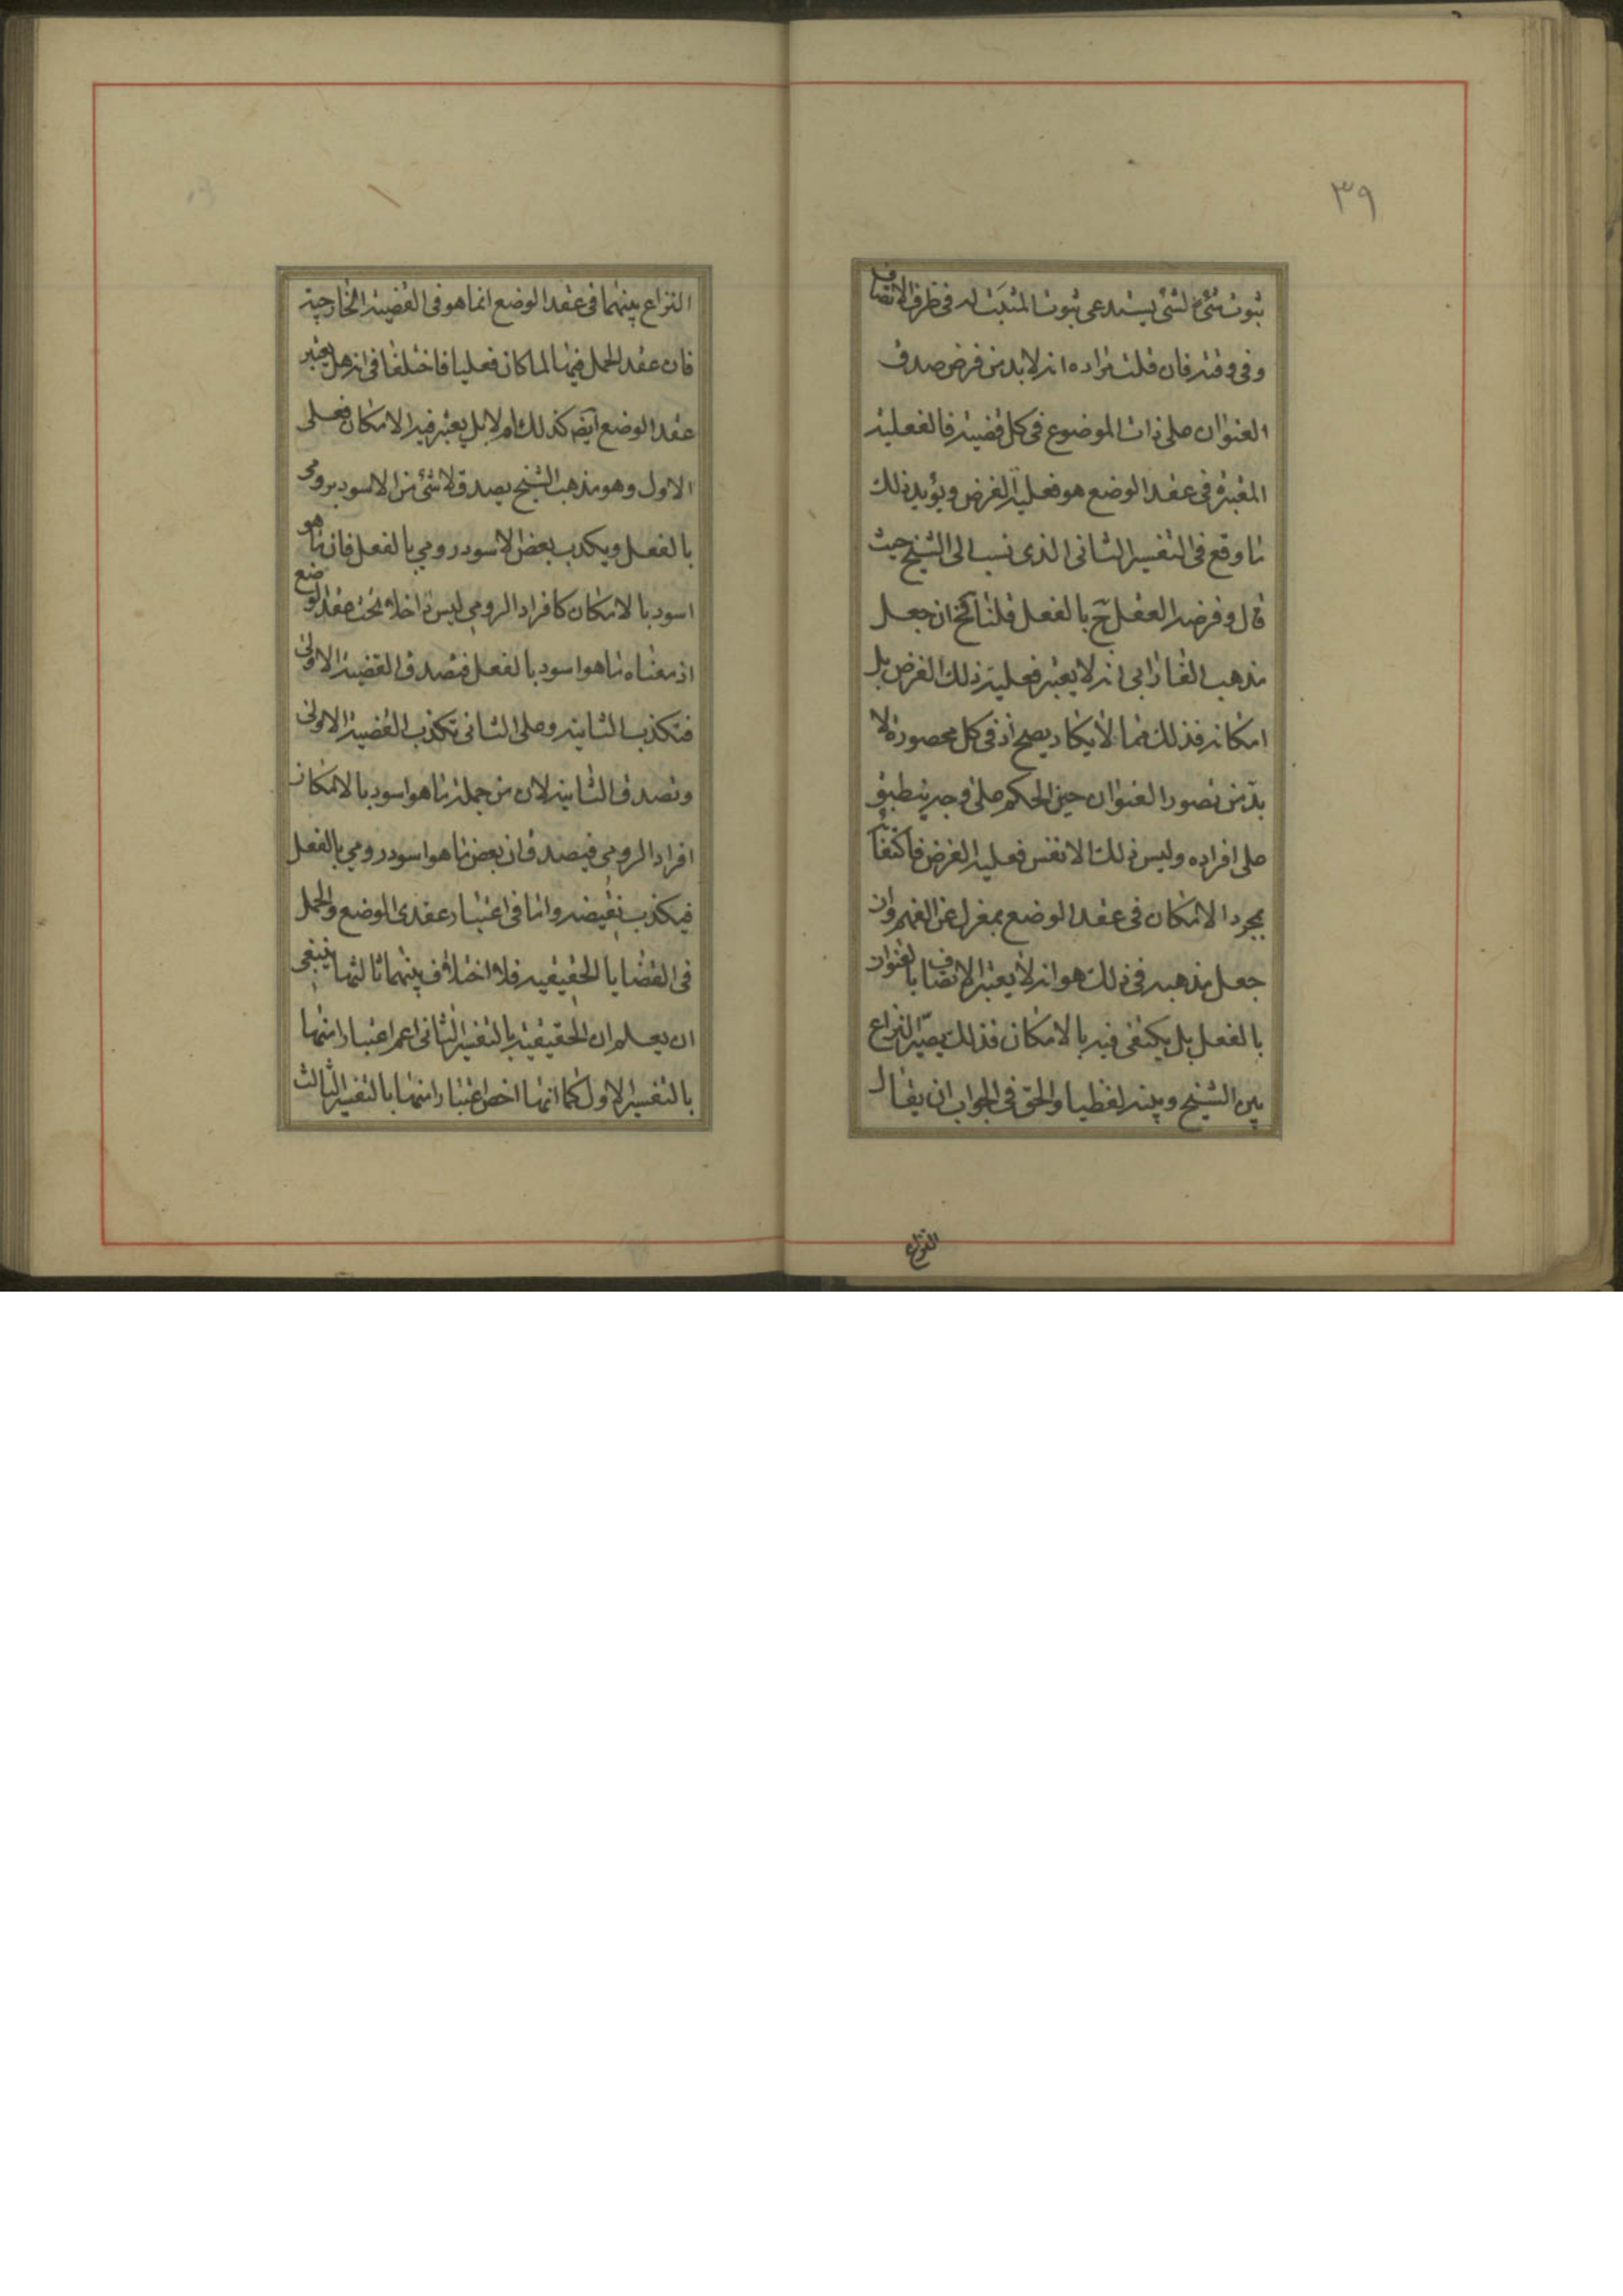 ٣٩
ثبوت شئ لشئ يستدعى ثبوت المثبت له فى ظرف الاتصاف
وفى وقته فان قلت مراده انه لابد من فرض صدق
العنوان على ذات الموضوع فى كل قضية فالفعلية
المعتبرة فى عقد الوضع هو فعلية الفرض ويؤيد ذلك
ما وقع فى التفسير الثانى الذى نسب الى الشيخ حيث
قال وفرضه العقل ج بالفعل قلنا ح ان جعل
مذهب الفارابى انه لا يعتبر فعلية ذلك الفرض بل
امكانه فذلك مما لا يكاد يصح اذ فى كل محصورة لا
بد من تصور العنوان حين الحكم على وجه ينطبق
على افراده وليس ذلك الا نفس فعلية الفرض فاكتفاء
بمجرد الامكان فى عقد الوضع بمعزل عن الفهم وان
جعل مذهبه فى ذلك هو انه لا يعتبر الاتصاف بالعنوان
بالفعل بل يكتفى فيه بالامكان فذلك يصيّر النزاع
بين الشيخ وبينه لفظيا والحق فى الجواب ان يقال
النزاع
النزاع بينهما فى عقد الوضع انما هو فى القضية الخارجية
فان عقد الحمل فيها لما كان فعليا فاختلفا فى انه هل يعتبر
عقد الوضع ايضا كذلك ام لا بل يعتبر فيه الامكان فعلى
الاول وهو مذهب الشيخ يصدق لا شئ من الاسود برومى
بالفعل ويكذب بعض الاسود رومى بالفعل فان ما هو
اسود بالامكان كافراد الرومى ليس داخلا تحت عقد الوضع
اذ معناه ما هو اسود بالفعل فتصدق القضية الاولى
فتكذب الثانية وعلى الثانى تكذب القضية الاولى
وتصدق الثانية لان من جملة ما هو اسود بالامكان
افراد الرومى فيصدق ان بعض ما هو اسود رومى بالفعل
فيكذب نقيضه واما فى اعتبار عقدى الوضع والحمل
فى القضايا الحقيقية فلا اختلاف بينهما ثالثها ينبغى
ان يعلم ان الحقيقية بالتفسير الثانى اعم اعتبارا منها
بالتفسير الاول كما انها اخص اعتبارا منها بالتفسير الثالث